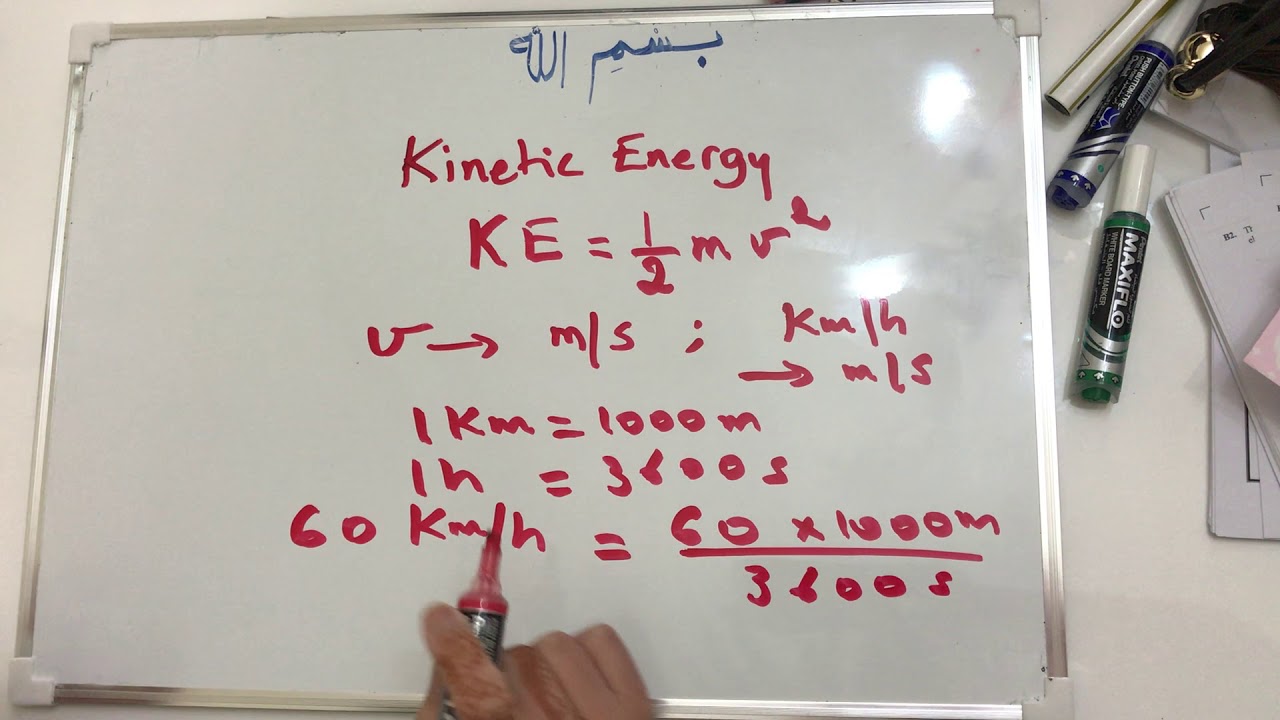 بسم الله
Kinetic Energy
KE = 1/2 m v²
v → m/s ; Km/h
→ m/s
1 Km = 1000 m
1 h = 3600 s
60 Km/h = 60 × 1000 m / 3600 s
PUSH BUTTON TYPE
MAXIFLO
WHITE BOARD MARKER